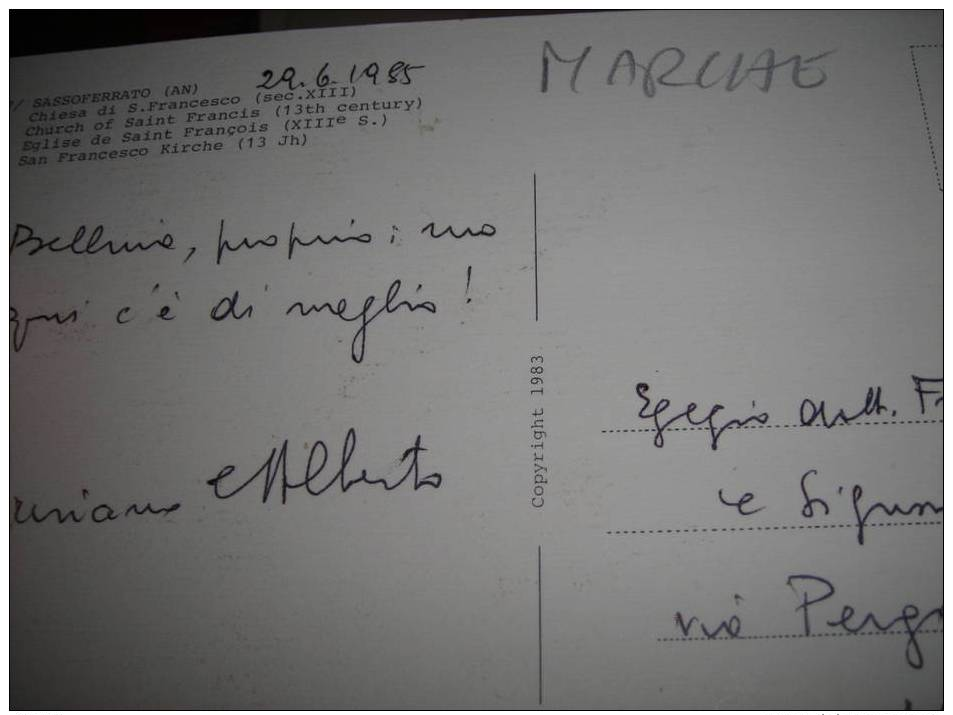 SASSOFERRATO (AN)
29.6.1985
Chiesa di S.Francesco (sec.XIII)
Church of Saint Francis (13th century)
Eglise de Saint François (XIIIe S.)
San Francesco Kirche (13 Jh)
MARCHE
proprio; ma
qui c'è di meglio!
Alberto
Copyright 1983
Egregio dott. F
e Sign
via Perg